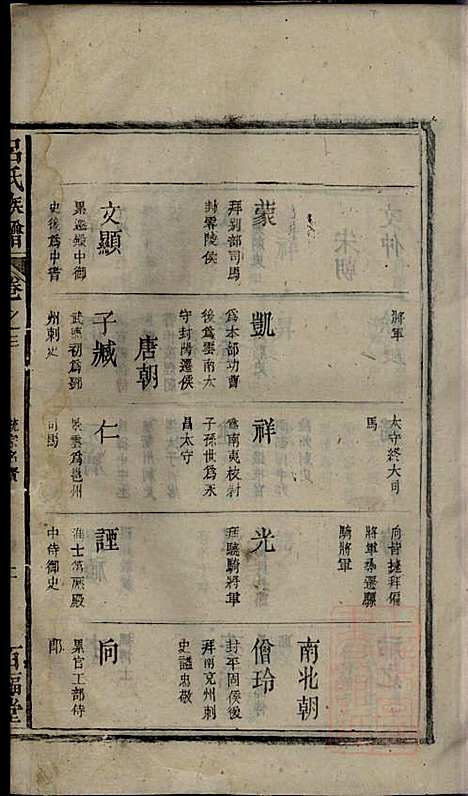 將軍
太守終大司
馬
將軍秦遷驃
騎將軍
南北朝
蒙
拜別部司馬
封零陵侯
凱
爲本部功曹
後爲雲南太
守封陽遷侯
祥
爲南夷校尉
子孫世爲永
昌太守
光
拜驍騎將軍
僧玲
封平固侯後
拜南兗州刺
史諡忠敬
唐朝
文顯
累遷殿中御
史後爲中書
子臧
武德初爲鄧
州刺史
仁
景雲爲邕州
司馬
諲
進士第殿
中侍御史
向
累官工部侍
郎
呂氏族譜
卷之三
百福堂